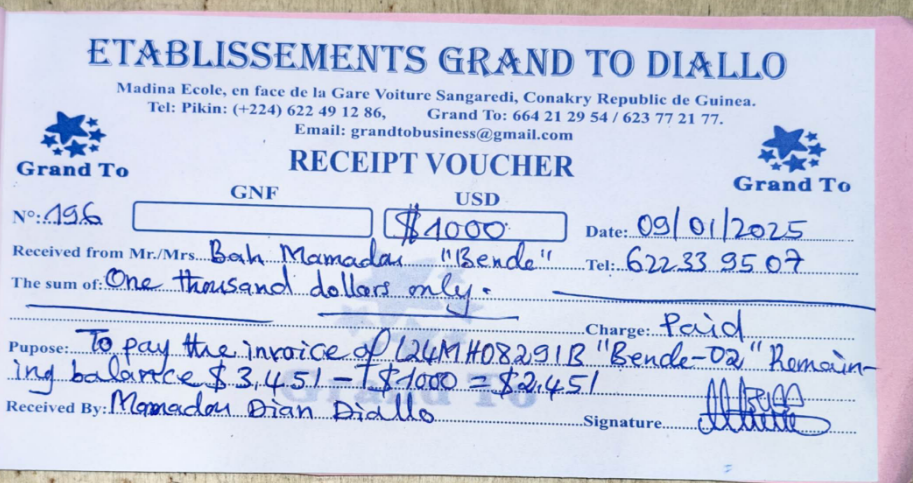 ETABLISSEMENTS GRAND TO DIALLO
Madina Ecole, en face de la Gare Voiture Sangaredi, Conakry Republic de Guinea.
Tel: Pikin: (+224) 622 49 12 86, Grand To: 664 21 29 54 / 623 77 21 77.
Email: grandtobusiness@gmail.com
Grand To
RECEIPT VOUCHER
Grand To
GNF USD
N°: 196 $1000 Date: 09/01/2025
Received from Mr./Mrs. Bah Mamadou "Bende" Tel: 622 33 95 07
The sum of: One thousand dollars only.
Charge: Paid
Pupose: To pay the invoice of L24MH08291B "Bende-02" Remain-
ing balance $3,451 - $1000 = $2,451
Grand To
Received By: Mamadou Dian Diallo
Signature